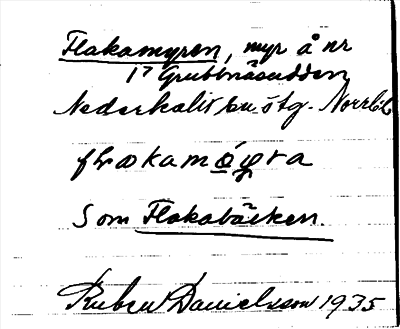 Flakamyren, myr å nr
17 Grubbnäsudden
Nederkalix sn. Norrb.
Som Flakabäcken.
Ruben Danielsson 1935